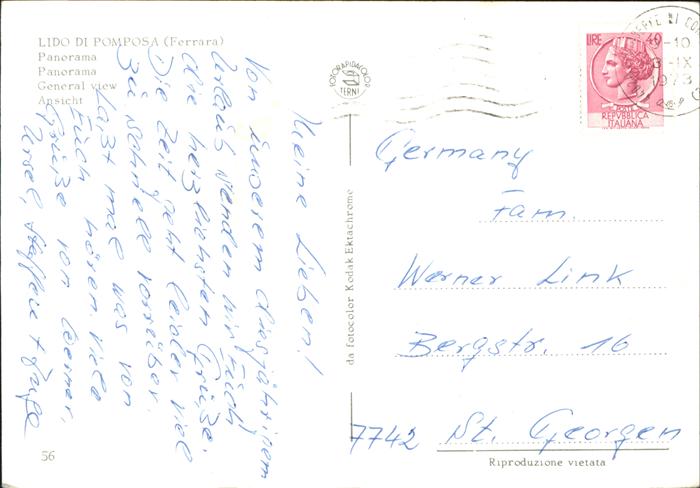 LIDO DI POMPOSA (Ferrara)
Panorama
Panorama
General view
Ansicht
FOTORAPIDACOLOR
TERNI
LIRE 40
REPVBBLICA
ITALIANA
-10
-IX
1973
Meine Lieben!
Von unserem diesjährigem
Urlaub senden wir Euch
die herzlichsten Grüße.
Die Zeit geht leider viel
zu schnell vorrüber.
Laßt mal was von
Euch hören. Viele
Grüße von Werner,
Ursel, Steffen +
da fotocolor Kodak Ektachrome
Germany
Fam.
Werner Link
Bergstr. 16
7742 St. Georgen
56
Riproduzione vietata